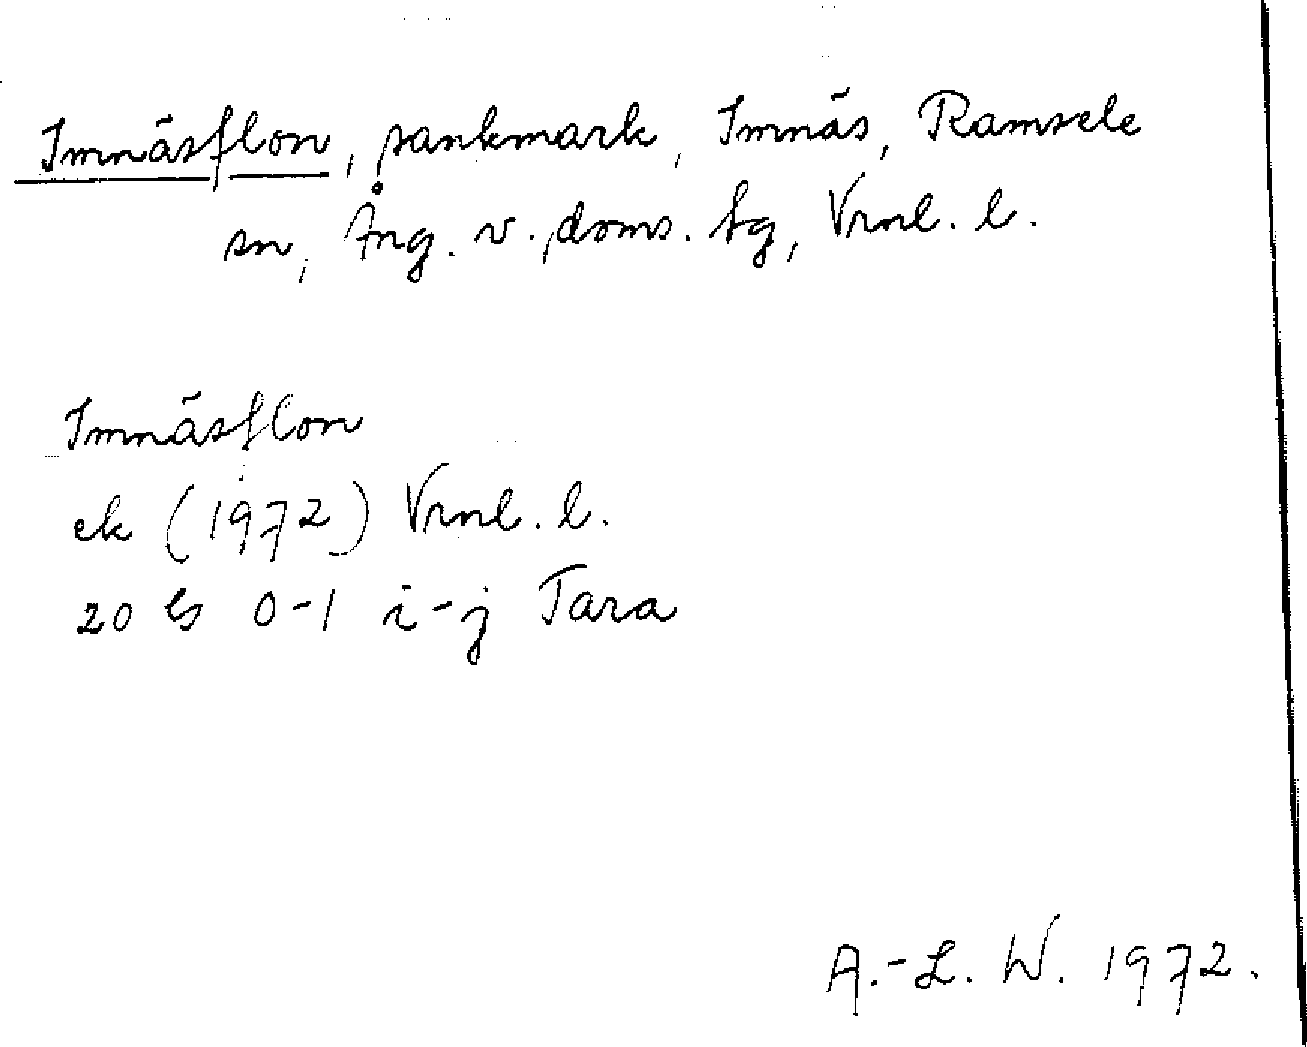 Imnäsflon, sankmark, Imnäs, Ramsele
sn, Ång. v. doms. tg, Vrnl. l.
Imnäsflon
ek (1972) Vrnl. l.
20 G 0-1 i-j Tara
A.-L. W. 1972.